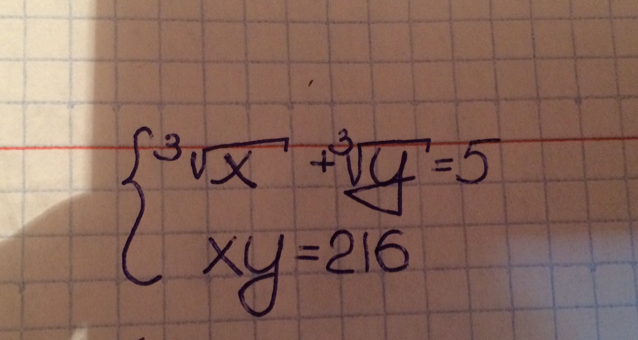 ³√x + ³√y = 5
xy = 216